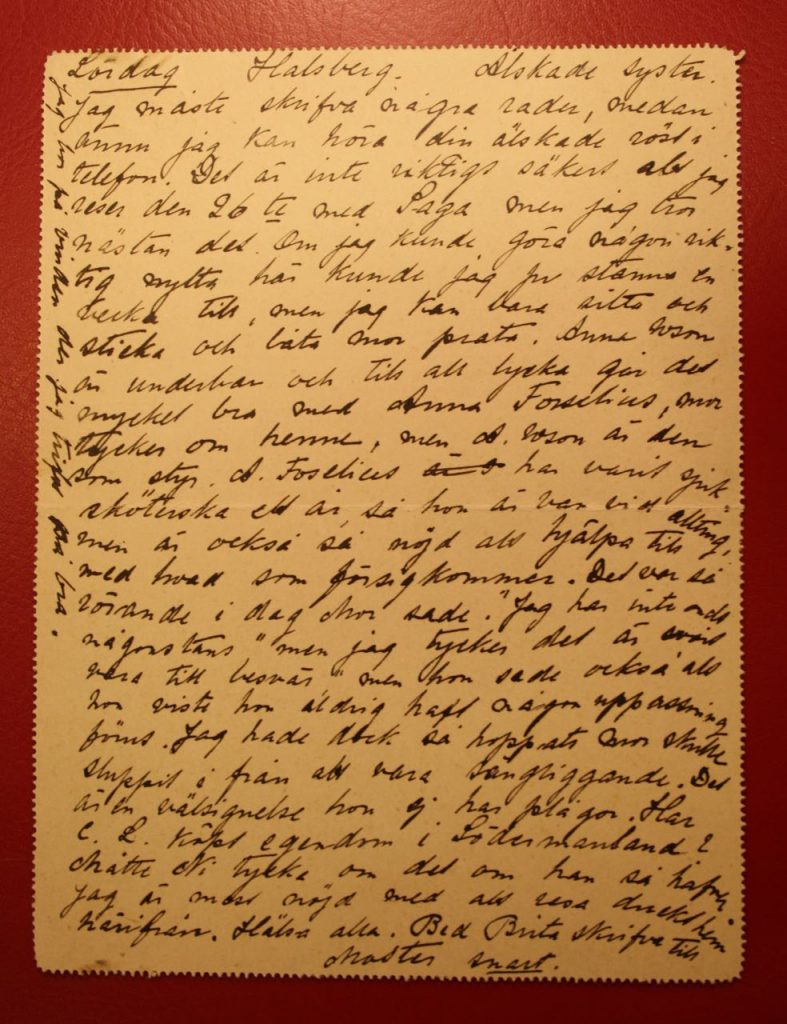 Lördag Halsberg. Älskade syster.
Jag måste skrifva några rader, medan
ännu jag kan höra din älskade röst i
telefon. Det är inte riktigt säkert att jag
reser den 26te med Saga men jag tror
nästan det. Om jag kunde göra någon rik-
tig nytta här kunde jag ju stanna en
vecka till, men jag kan bara sitta och
sticka och låta mor prata. Anna
är underbar och till att tycka går det
mycket bra med Anna Forselius, mor
tycker om henne, men A. är den
som styr. A. Foselius har varit sjuk-
sköterska ett år, så hon är van vid allting,
men är också så nöjd att hjälpa till
med hvad som försigkommer. Det var så
rörande i dag Mor sade. "Jag har inte ondt
någonstans" men jag tycker det är svårt
vara till besvär" men hon sade också att
hon visste hon aldrig haft någon uppassning
förus. Jag hade dock så hoppats mor skulle
sluppit i från att vara sängliggande. Det
är en välsignelse hon ej har plågor. Har
C. L. köpt egendom i Södermanland?
Måtte Ni tycka om det om han så
Jag är mest nöjd med att resa direkt hem
härifrån. Hälsa alla. Bed Brita skrifva till
Moster snart.
Jag bor på vinden der jag trifs bra.